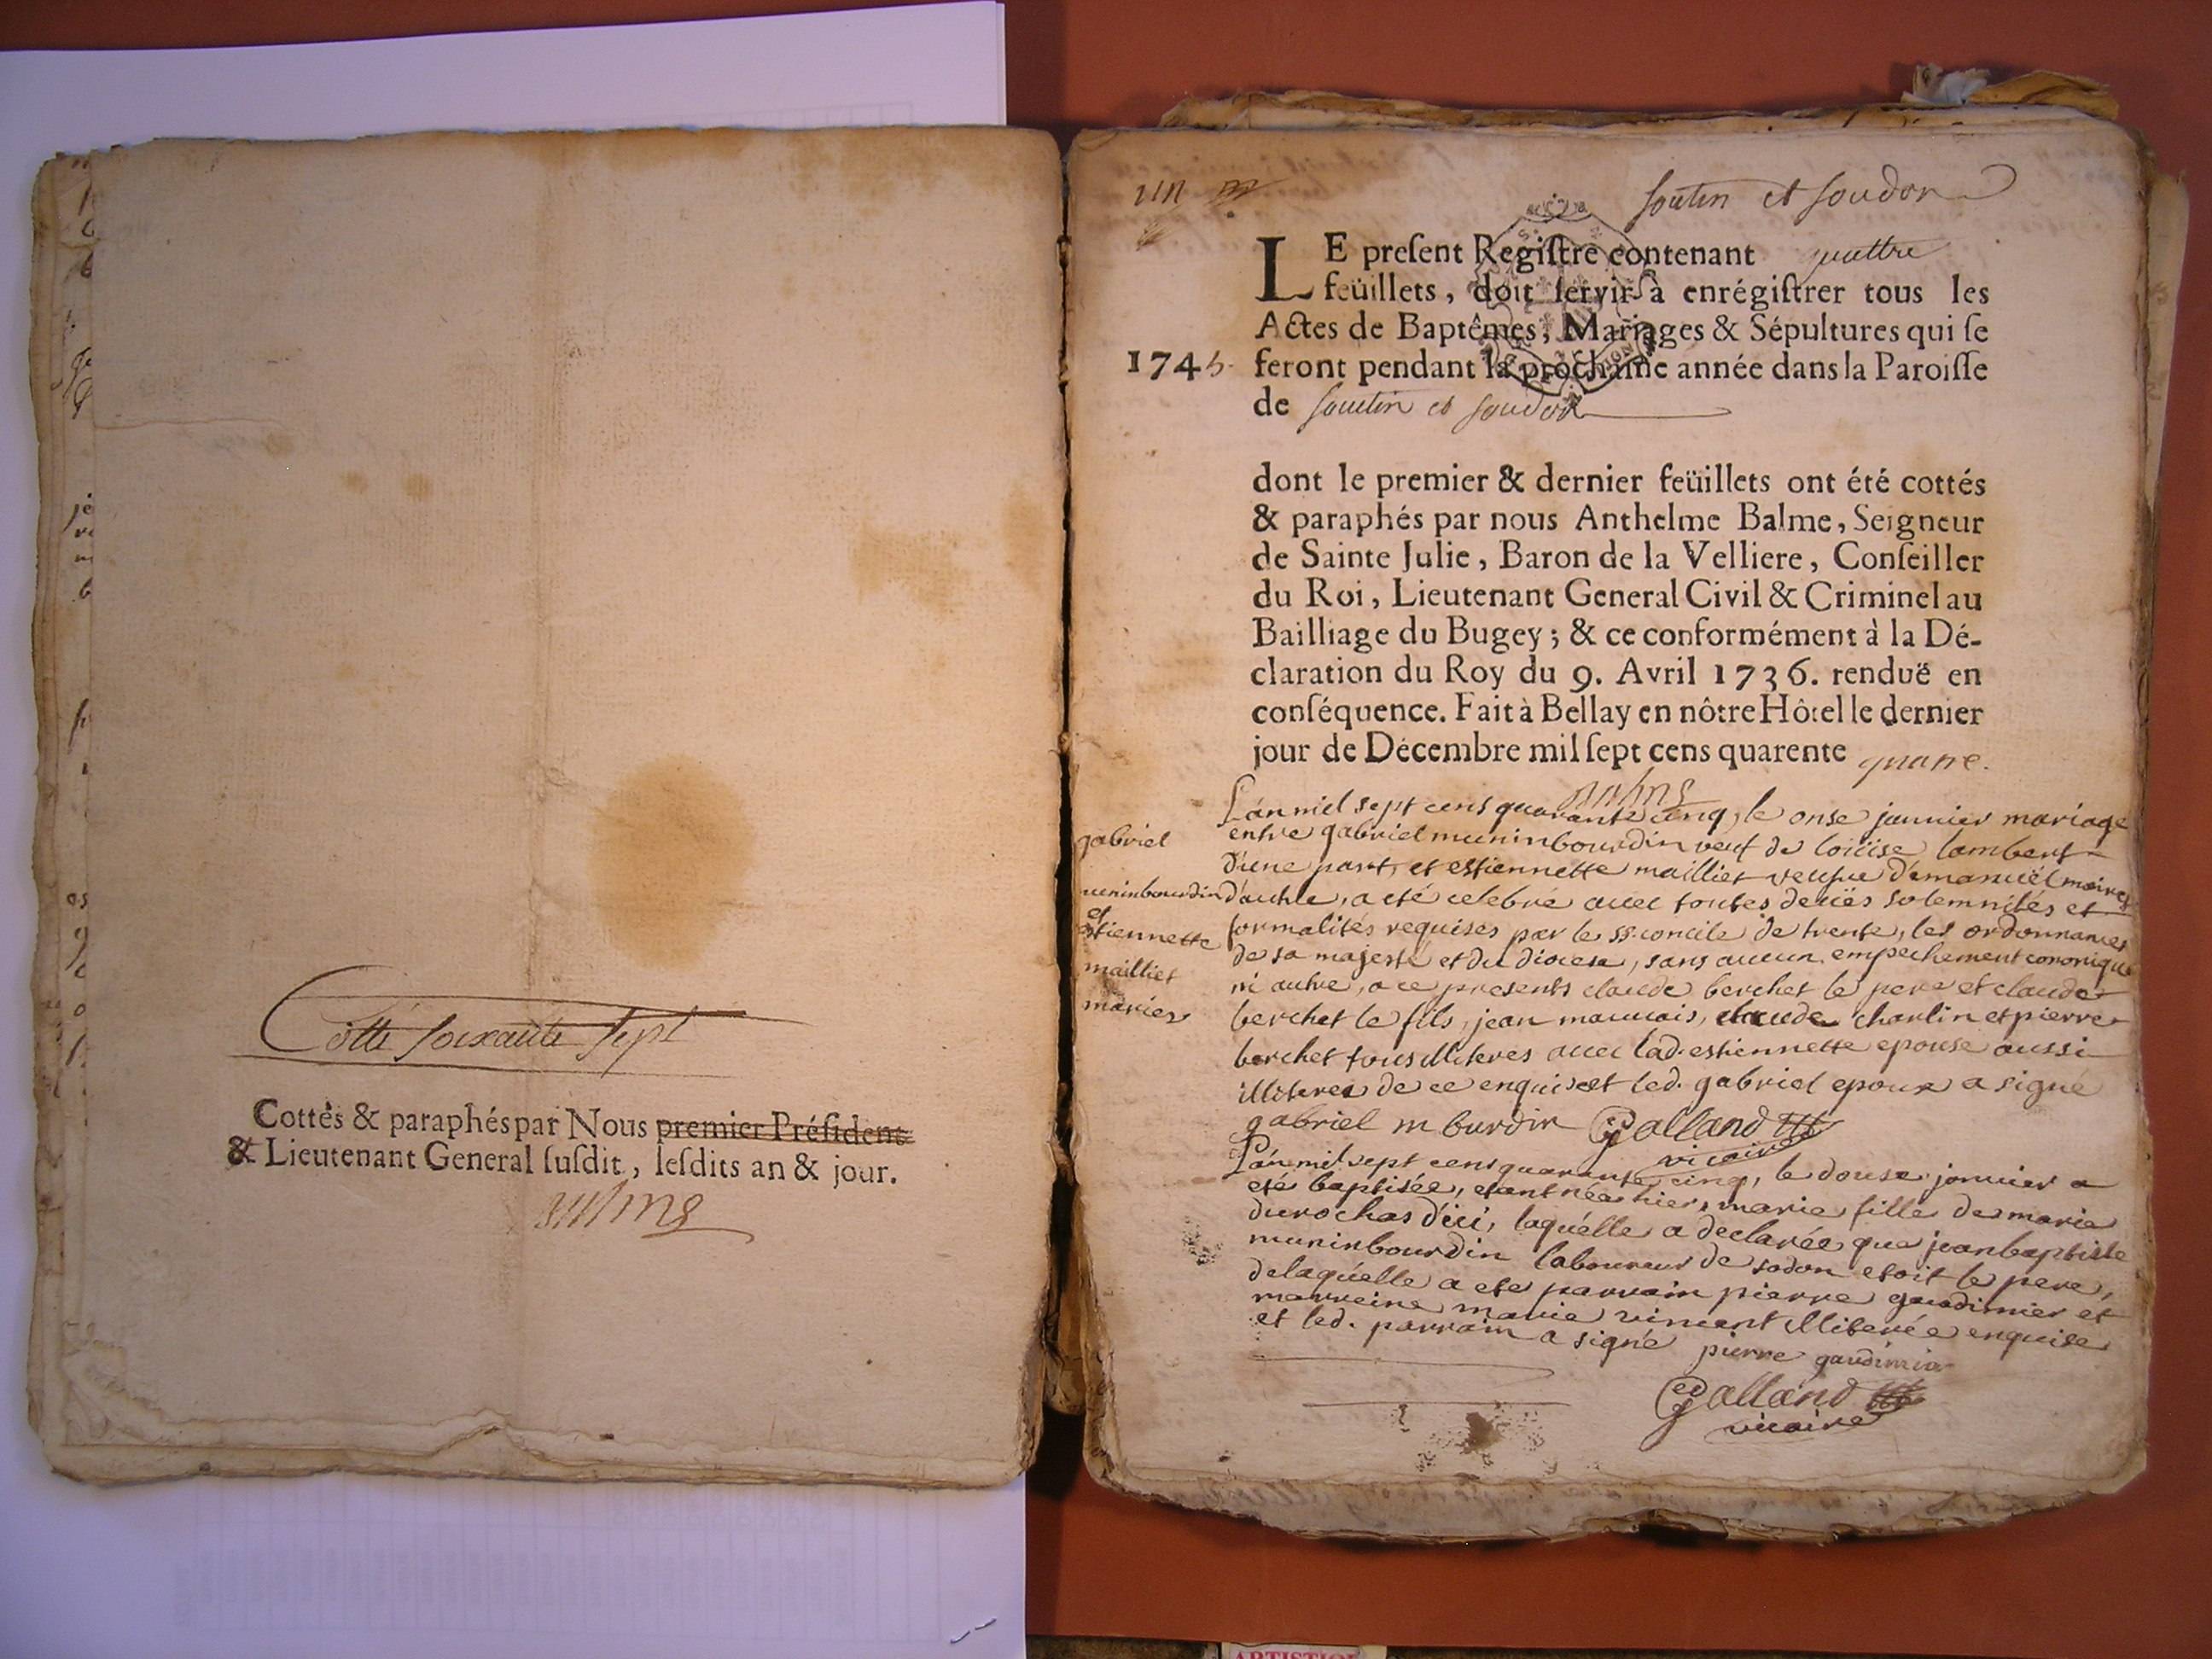 Cotté soixante sept
Cottés & paraphés par Nous premier Président
& Lieutenant General suſdit, leſdits an & jour.
un
soutin et soudon
LE preſent Regiſtre contenant quattre
feüillets, doit ſervir à enrégiſtrer tous les
Actes de Baptêmes, Mariages & Sépultures qui ſe
1745. feront pendant la prochaine année dans la Paroiſſe
de soutin et soudon
dont le premier & dernier feüillets ont été cottés
& paraphés par nous Anthelme Balme, Seigneur
de Sainte Julie, Baron de la Velliere, Conſeiller
du Roi, Lieutenant General Civil & Criminel au
Bailliage du Bugey; & ce conformément à la Dé-
claration du Roy du 9. Avril 1736. renduë en
conſéquence. Fait à Bellay en nôtre Hôtel le dernier
jour de Décembre mil ſept cens quarente quatre.
gabriel
muninbourdin
et
estiennette
mailliet
mariés
L'an mil sept cens quarante cinq, le onse janvier mariage
entre gabriel muninbourdin veuf de loüise lambert
d'une part, et estiennette mailliet veufve d'emanuël
d'autre, a eté celebré avec toutes deües solemnités et
formalités requises par le ss. concile de trente, les ordonnances
de sa majesté et du diocese, sans aucun empechement cononique
ni autre, a ce presents claude berchet le pere et claude
berchet le fils, jean mauvais, claude charlin et pierre
berchet tous illiteres avec lad. estiennette epouse aussi
illiteree de ce enquis et led. gabriel epoux a signé
gabriel m burdin Galland
vicaire
L'an mil sept cens quarante cinq, le douse janvier a
eté baptisée, etant née hier, marie fille de marie
durochas d'ici, laquélle a declarée que jeanbaptiste
muninbourdin laboureur de sodon etoit le pere,
delaquélle a eté parrain pierre gaudimier et
marreine marie vincent illiterée enquise
et led. parrain a signé pierre gaudimier
Galland
vicaire